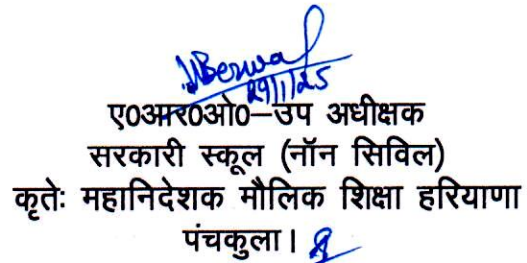 29/1/25
ए०आर०ओ०–उप अधीक्षक
सरकारी स्कूल (नॉन सिविल)
कृतेः महानिदेशक मौलिक शिक्षा हरियाणा
पंचकुला।